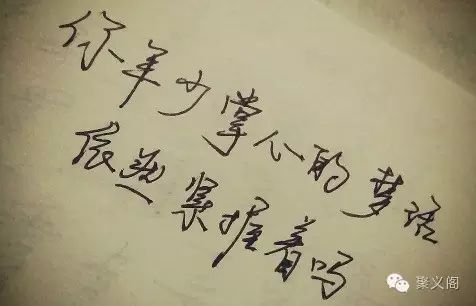 你年少掌心的梦话
依然紧握着吗
聚义阁